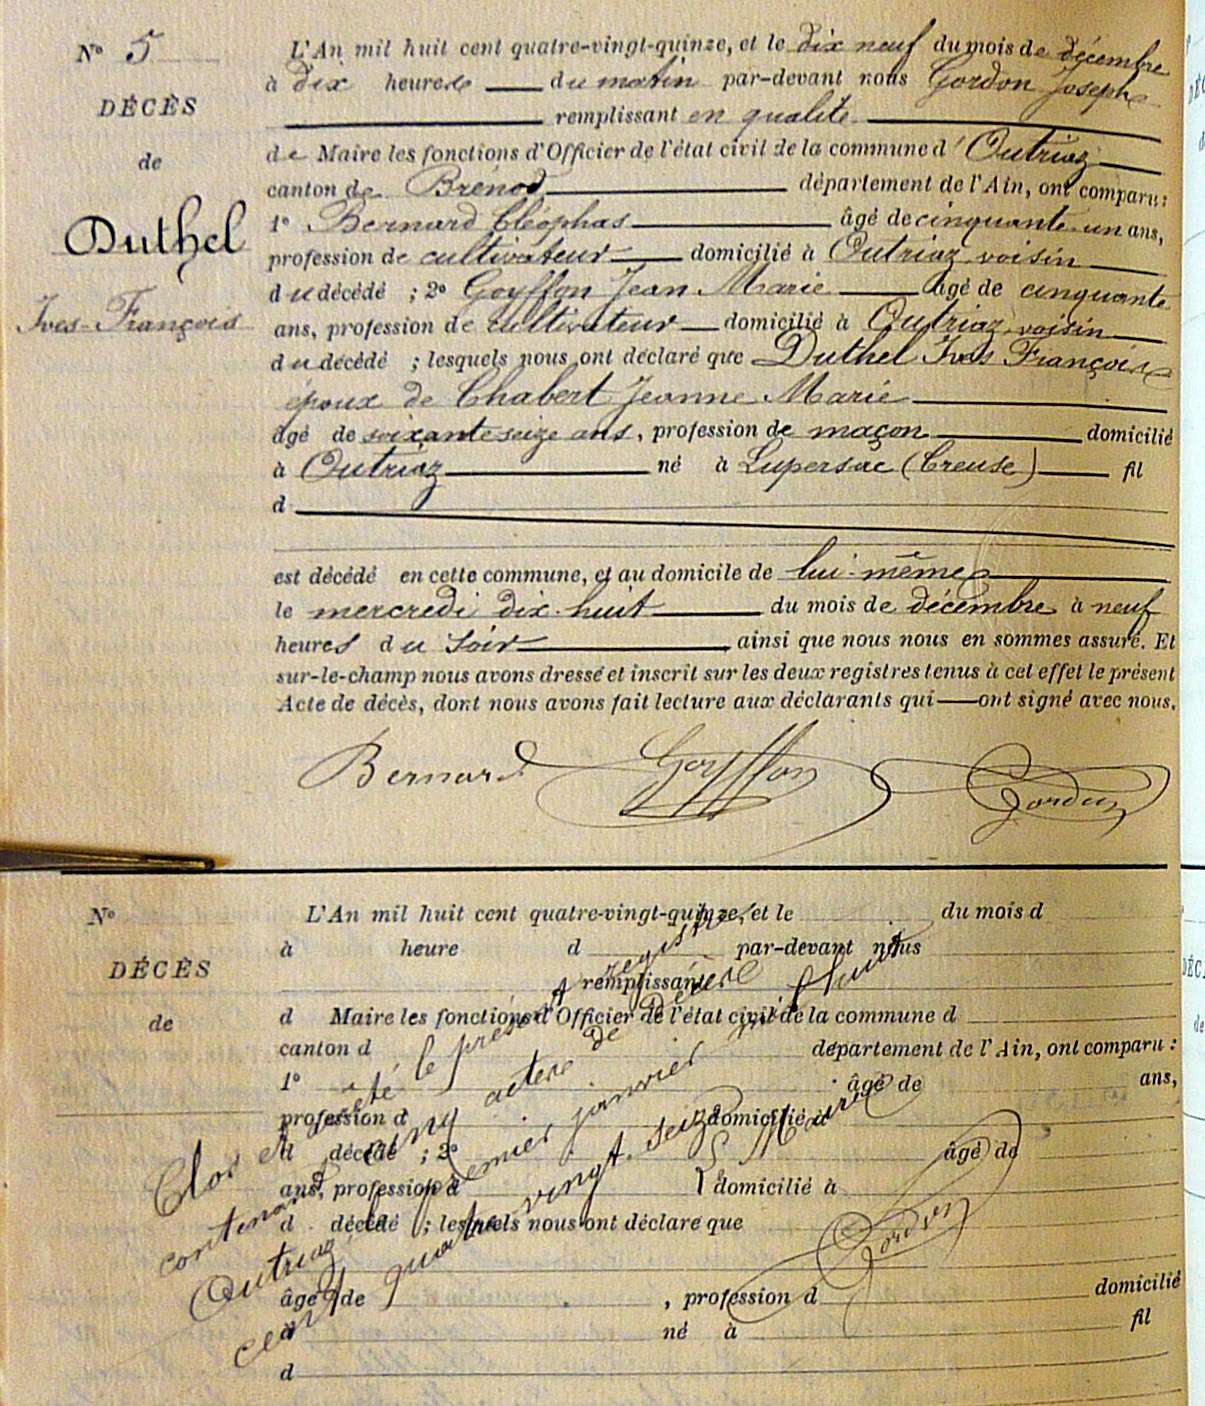 N° 5
DÉCÈS
de
Duthel
Ives-François
L'An mil huit cent quatre-vingt-quinze, et le dix neuf du mois de décembre
à dix heures du matin par-devant nous Gordon Joseph
remplissant en qualité
de Maire les fonctions d'Officier de l'état civil de la commune d'Outriaz
canton de Brénod département de l'Ain, ont comparu :
1° Bernard Cléophas âgé de cinquante-un ans,
profession de cultivateur domicilié à Outriaz voisin
du décédé ; 2° Goyffon Jean Marie âgé de cinquante
ans, profession de cultivateur domicilié à Outriaz, voisin
du décédé ; lesquels nous ont déclaré que Duthel Ives François
époux de Chabert Jeanne Marie
âgé de soixante seize ans, profession de maçon domicilié
à Outriaz né à Lupersac (Creuse) fil
d
est décédé en cette commune, et au domicile de lui-même
le mercredi dix-huit du mois de décembre à neuf
heures du soir, ainsi que nous nous en sommes assuré. Et
sur-le-champ nous avons dressé et inscrit sur les deux registres tenus à cet effet le présent
Acte de décès, dont nous avons fait lecture aux déclarants qui ont signé avec nous.
Bernard Goyffon Gordon
N°
DÉCÈS
de
L'An mil huit cent quatre-vingt-quinze, et le du mois d
à heure d par-devant nous
remplissant
d Maire les fonctions d'Officier de l'état civil de la commune d
canton d département de l'Ain, ont comparu :
1° âgé de ans,
profession d domicilié à
d décédé ; 2° âgé de
ans, profession d domicilié à
d décédé ; lesquels nous ont déclaré que
âgé de , profession d domicilié
à né à fil
d
Clos et arrêté le présent registre
contenant cinq actes de décès
Outriaz le premier janvier mil huit
cent quatre vingt-seize
Le Maire
Gordon